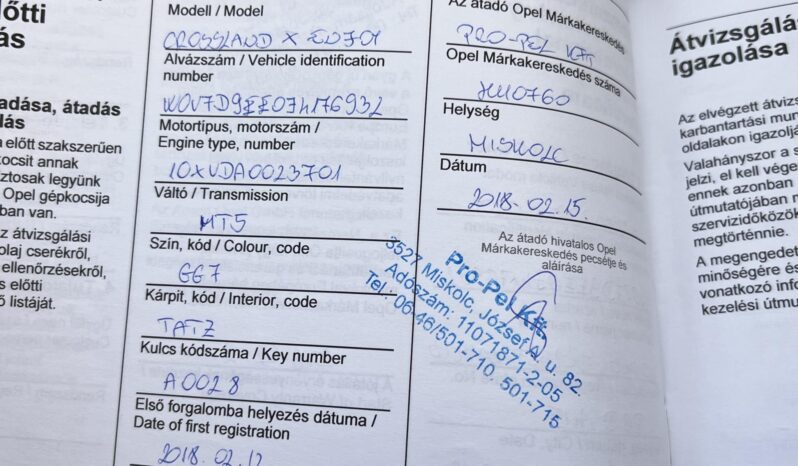 lőtti
ás
adása, átadás
lás
a előtt szakszerűen
kocsit annak
ztosak legyünk
Opel gépkocsija
ban van.
az átvizsgálási
olaj cserékről,
ellenőrzésekről,
s előtti
listáját.
Modell / Model
CROSSLAND X ED701
Alvázszám / Vehicle identification
number
Motortípus, motorszám /
Engine type, number
10XVDA0023701
Váltó / Transmission
MT5
Szín, kód / Colour, code
GG7
Kárpit, kód / Interior, code
TATZ
Kulcs kódszáma / Key number
A0028
Első forgalomba helyezés dátuma /
Date of first registration
2018.02.12
Az átadó Opel Márkakereskedés
PRO-PEL KFT
Opel Márkakereskedés száma
HU0760
Helység
MISKOLC
Dátum
2018.02.15.
Az átadó hivatalos Opel
Márkakereskedés pecsétje és
aláírása
Pro-Pel Kft.
3527 Miskolc, József A. u. 82.
Adószám: 11071871-2-05
Tel.: 06-46/501-710, 501-715
Átvizsgálás
igazolása
Az elvégzett átvizs
karbantartási mun
oldalakon igazolj
Valahányszor a s
jelzi, el kell vége
ennek azonban
útmutatójában m
szervizidőközök
megtörténnie.
A megengedet
minőségére és
vonatkozó info
kezelési útmu